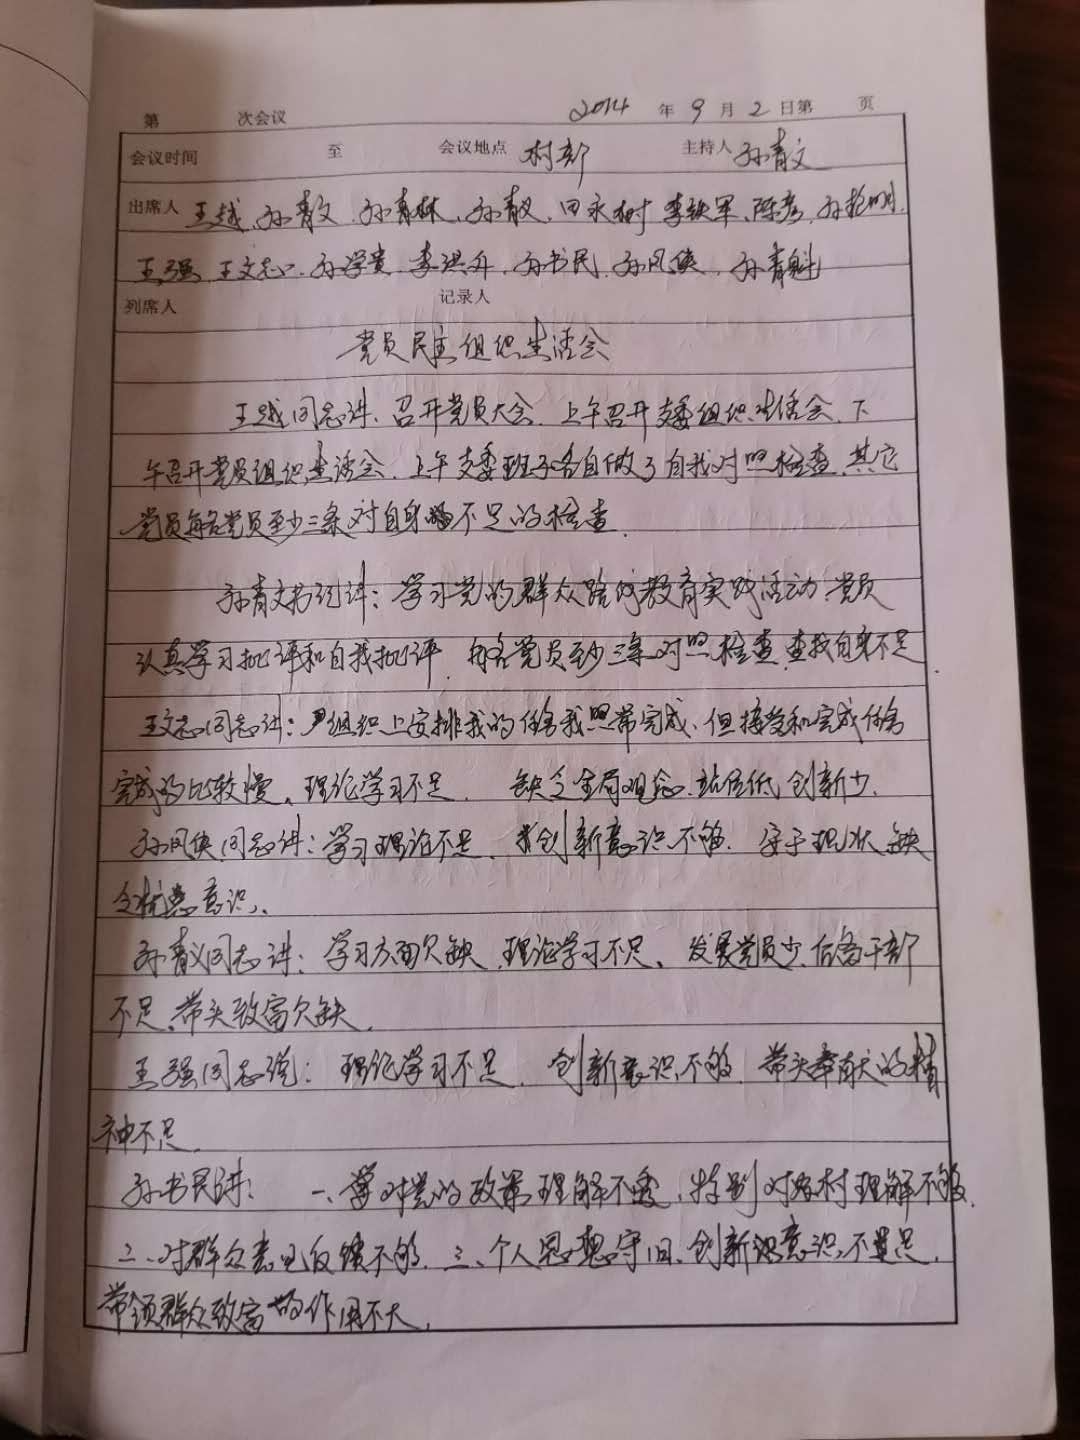 第 次会议 2014 年 9 月 2 日第 页
会议时间 至 会议地点 村部 主持人 孙青文
出席人 王越、孙青文、孙青林、孙青义、田永树、李铁军、陈彦、孙艳明、
王强、王文志、孙学贵、李洪升、孙书民、孙凤侠、孙青魁
列席人 记录人
党员民主组织生活会
王越同志讲、召开党员大会、上午召开支委组织生活会、下
午召开党员组织生活会、上午支委班子各自做了自我对照检查、其它
党员每名党员至少三条对自身不足的检查.
孙青文书记讲:学习党的群众路线教育实践活动、党员
认真学习批评和自我批评、每名党员至少三条对照检查、查找自身不足
王文志同志讲:组织上安排我的任务我照常完成、但接受和完成任务
完成的比较慢、理论学习不足、缺乏全局观念、站位低、创新少.
孙凤侠同志讲:学习理论不足、创新意识不够、安于现状、缺
乏忧患意识、
孙青义同志讲:学习方面欠缺、理论学习不足、发展党员少、后备干部
不足、带头致富欠缺.
王强同志说:理论学习不足、创新意识不够、带头奉献的精
神不足.
孙书民讲:一、对党的政策理解不透、特别对农村理解不够、
二、对群众意见反馈不够、三、个人思想守旧、创新意识不足、
带领群众致富的作用不大.